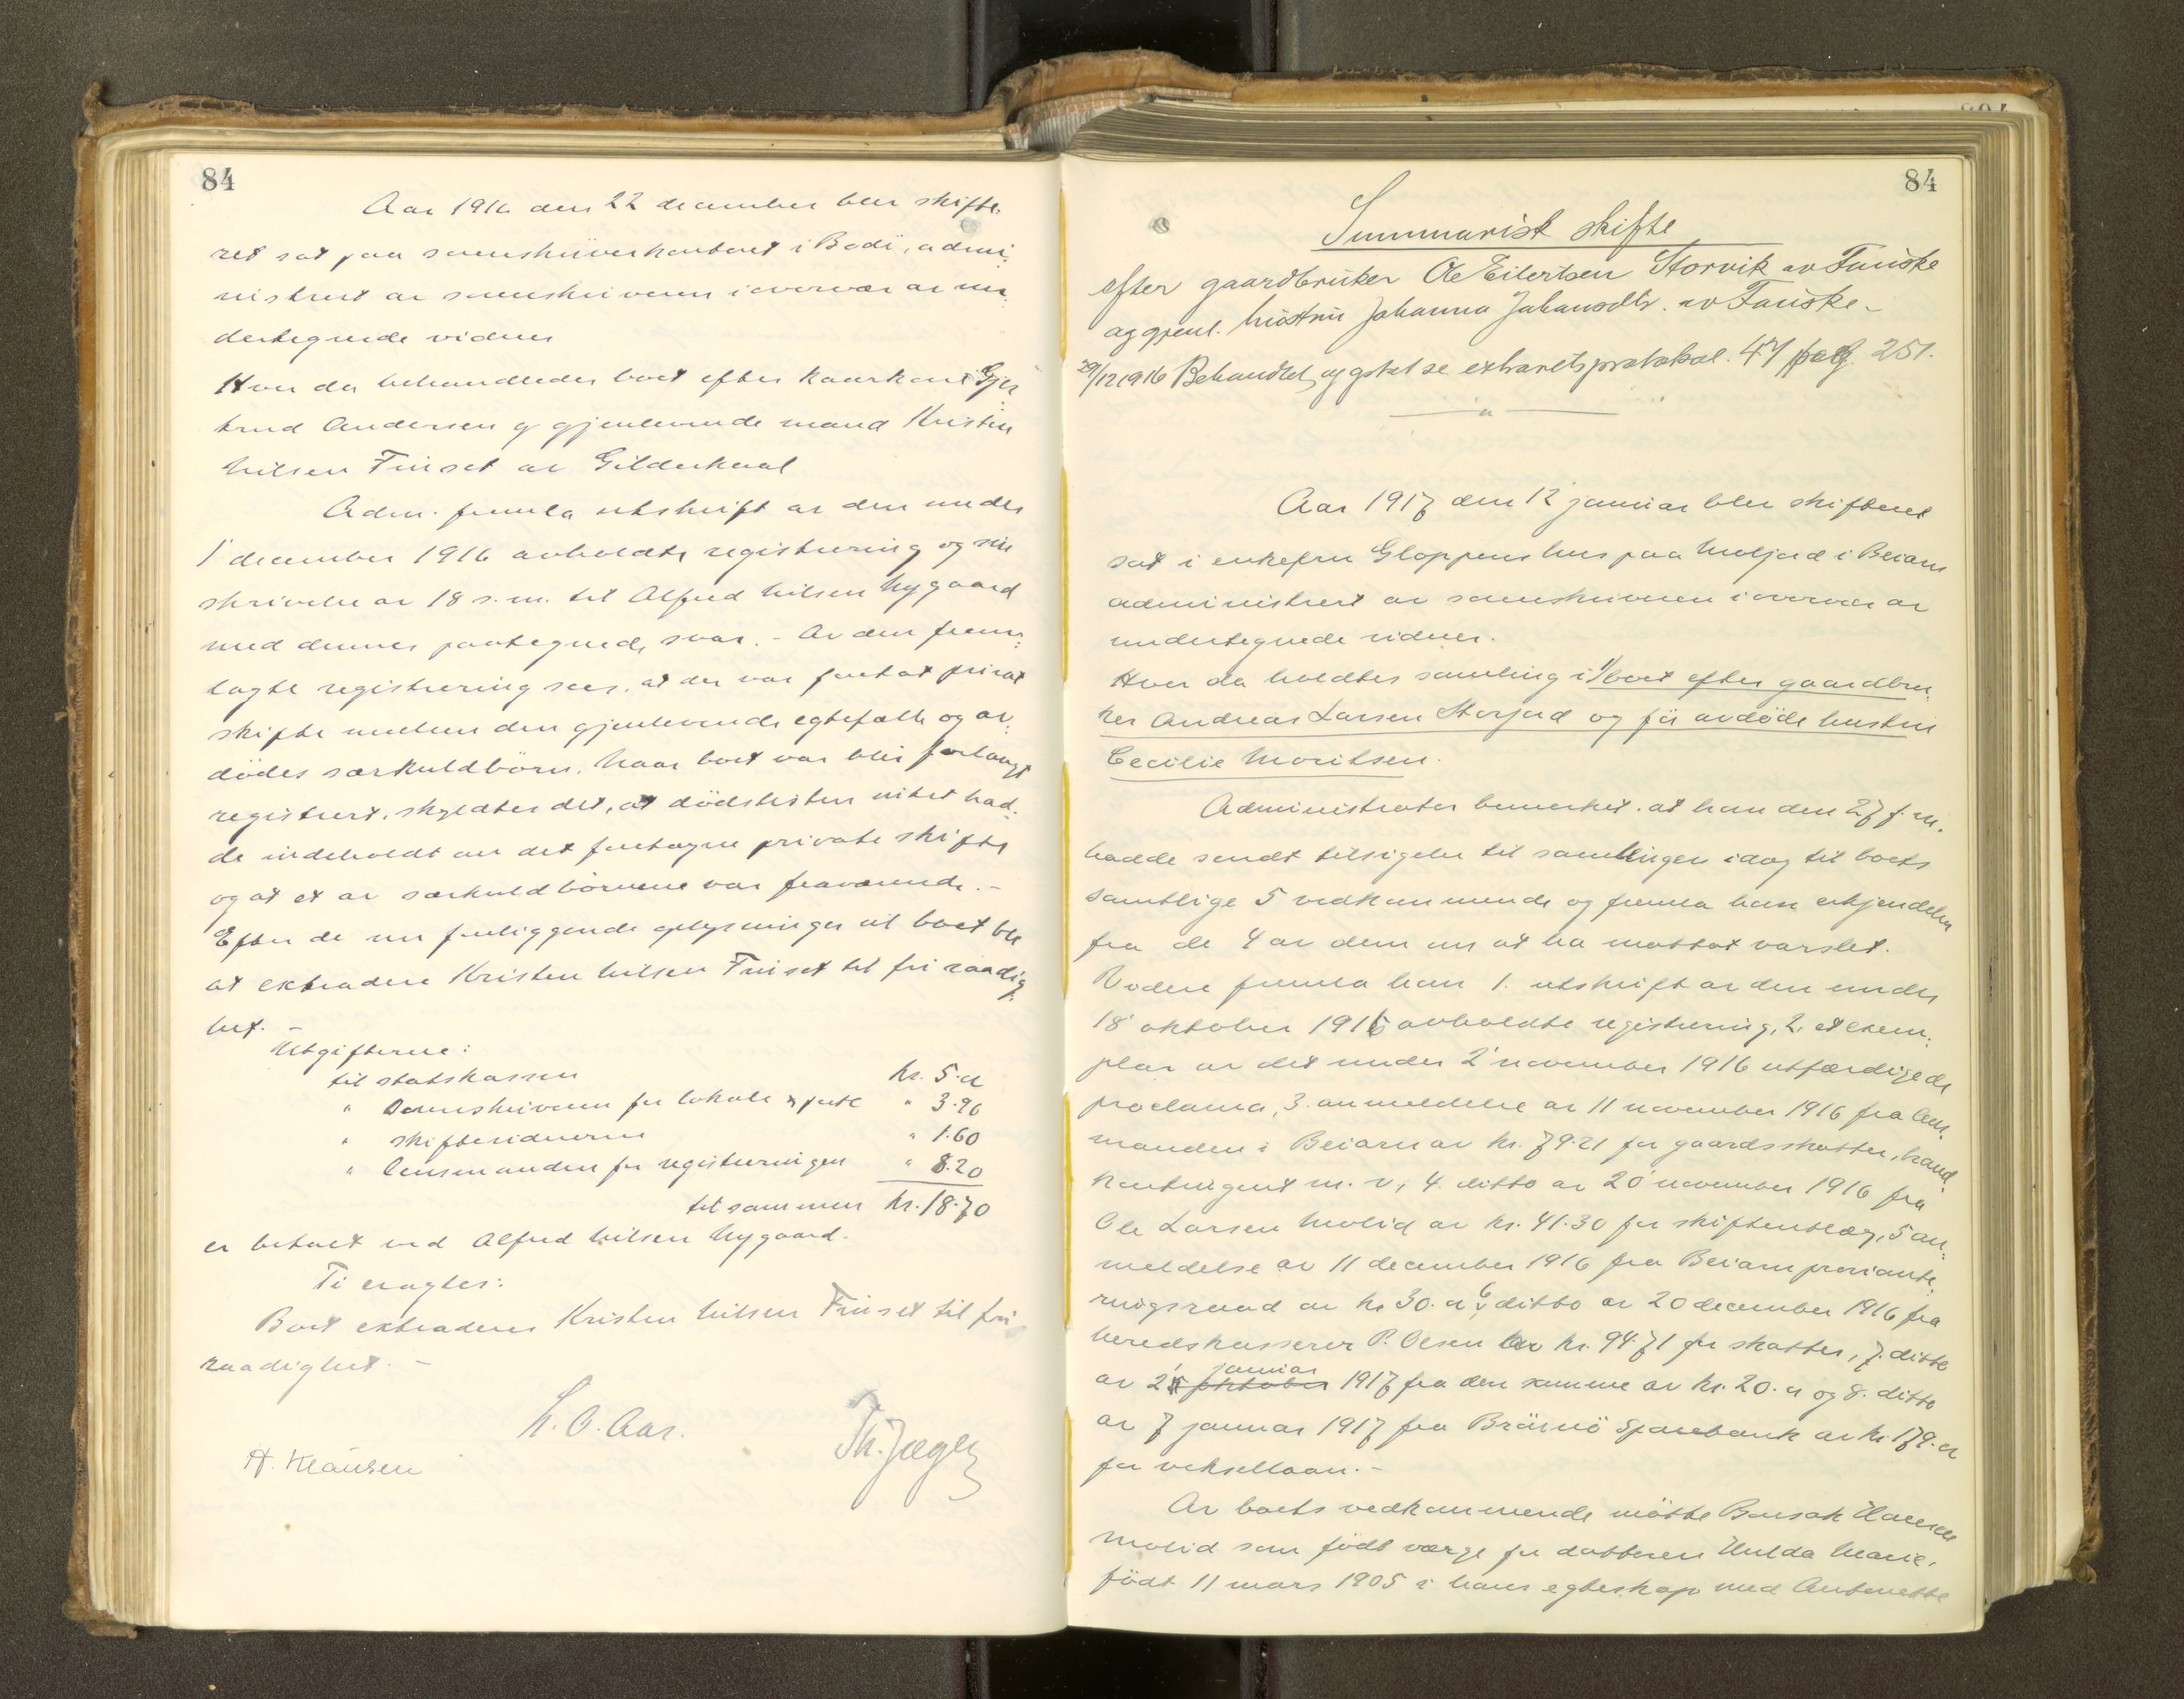 84
Aar 1916 den 22 december blev skifte-
ret sat paa sorenskriverkontoret i Bodö, admi-
nistrert av sorenskriveren i overvær av un-
dertegnede vidner
Hvor da behandledes boet efter kaarkone Gjer-
trud Andersen og gjenlevende mand Kristen
Nilsen Finset av Gildeskaal
Adm. fremla utskrift av den under
1' december 1916 avholdte registrering og sin
skrivelse av 18 s.m. til Alfred Nilsen Nygaard
med dennes paategnede svar. - Av den frem-
lagte registrering sees, at der var foretat privat
skifte mellem den gjenlevende egtefælle og av-
dödes særkuldbörn. Naar boet var blit forlangt
registrert, skyldtes det, at dödslisten intet had-
de indeholdt om det foretagne private skifte
og at et av særkuldbörnene var fraværende. -
Efter de nu foreliggende oplysninger vil boet bli
at extradere Kristen Nilsen Finset til fri raadig-
het. -
Utgifterne:
til statskassen kr. 5.„
" Sorenskriveren for lokale & porto " 3.90
" skiftevidnerne " 1.60
" lensmanden for registreringen " 8.20
tilsammen kr. 18.70
er betalt ved Alfred Nilsen Nygaard.
Ti eragtes:
Boet extraderes Kristen Nilsen Finset til fri
raadighet. -
L. O. Aas.
Th. Jæger
H. Klausen
84
Summarisk skifte
efter gaardbruker Ole Eilertsen Storvik av Fauske
og gjenl. hustru Johanna Johansdtr. av Fauske -
29/12 1916 Behandlet og sluttet se extraretsprotokol. 47 pag. 251.
Aar 1917 den 12' januar blev skifteret
sat i enkefru Gloppens hus paa Moljord i Beiarn
administrert av sorenskriveren i overvær av
undertegnede vidner.
Hvor da holdtes samling i 1/ boet efter gaardbru-
ker Andreas Larsen Storjord og för avdöde hustru
Cecilie Moritsen.
Administrator bemerket, at han den 27 f.m.
hadde sendt tilsigelse til samlingen idag til boets
samtlige 5 vedkommende og fremla han erkjendelse
fra de 4 av dem om at ha mottat varslet.
Videre fremla han 1. utskrift av den under
18' oktober 1916 avholdte registrering, 2. et exem-
plar av det under 2' november 1916 utfærdigede
proclama, 3. anmeldelse av 11 november 1916 fra lens-
manden i Beiarn av kr. 79.21 for gaardsskatter, brand-
kontingent m. v., 4. ditto av 20 november 1916 fra
Ole Larsen Molid av kr. 41.30 for skifteutlæg, 5 an-
meldelse av 11 december 1916 fra Beiarn proviante-
ringsraad av kr 30.„ 6, ditto av 20 december 1916 fra
heredskasserer P. Olsen av kr. 94.71 for skatter, 7. ditto
av 2' januar 1917 fra den samme av kr. 20.„ og 8. ditto
av 7 januar 1917 fra Brænnö Sparebank av kr. 179.„
for veksellaan. -
Av boets vedkommende mötte
Molid som födt værge for datteren Hulda Marie,
födt 11 mars 1905 i hans egteskap med Antonette